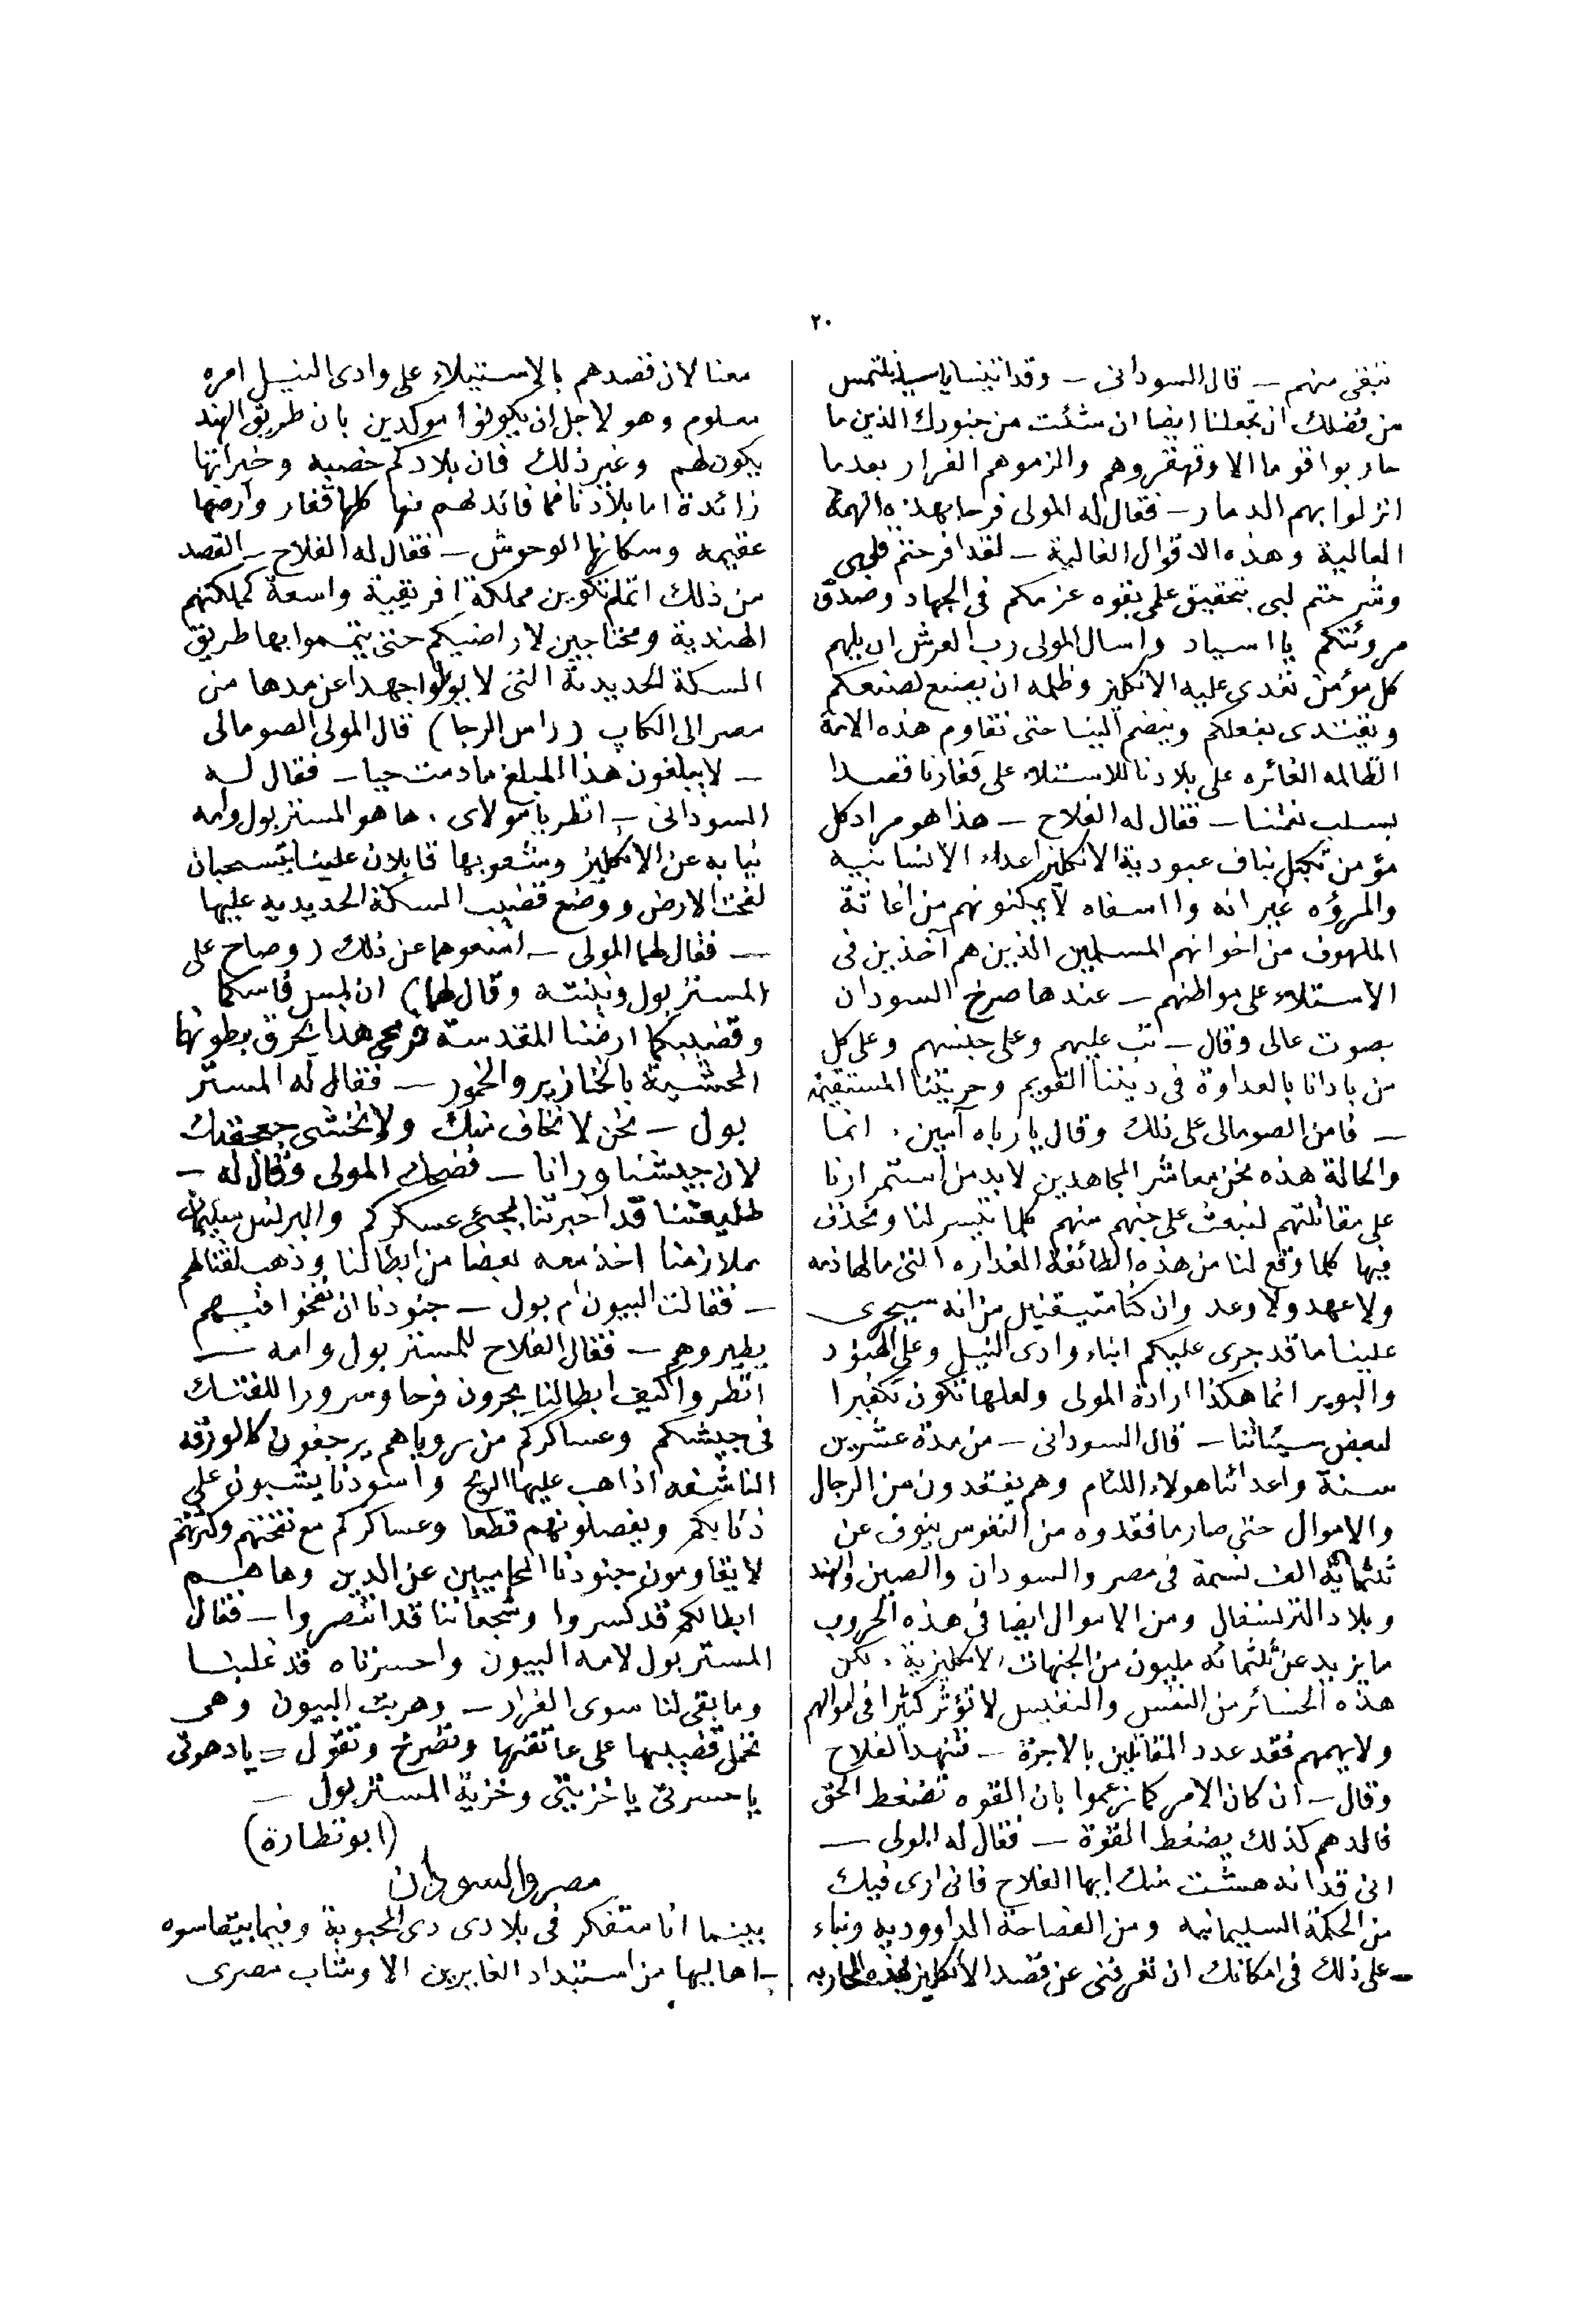 ٢٠
ننتقى منهم – قال السودانى – وقد اتينا ياسيد نلتمس
من فضلك ان تجعلنا ايضا ان شئت من جنودك الذين ما
حاربوا قوما الا وقهقروهم والزموهم الفرار بعدما
انزلوا بهم الدمار – فقال له المولى فرحا بهذه الهمة
العالية وهذه الاقوال الغالية – لقد افرحتم قلبى
وشرحتم لبى بتحقيق علمى بقوه عزمكم فى الجهاد وصدق
مروئتكم يا اسياد واسال المولى رب العرش ان يلهم
كل مؤمن تعدى عليه الانكليز وظلمه ان يصنع لصنعكم
ويقتدى بفعلكم وينضم الينا حتى نقاوم هذه الامة
الظالمه الغائره على بلادنا للاستلاء على قفارنا قصدا
بسلب نعمتنا – فقال له الفلاح – هذا هو مراد كل
مؤمن عبودية الانكليز اعداء الانسانيه
والمروءه غير انه وا اسفاه لا يمكنونهم من اغاثة
الملهوف من اخوانهم المسلمين الذين هم آخذين فى
الاستلاء على مواطنهم – عندها صرخ السودان
بصوت عالى وقال – تب عليهم وعلى جنسهم وعلى كل
من بادانا بالعداوة فى ديننا القويم وحريتنا المستقيمة
– فامن الصومالى على ذلك وقال يا رباه آمين. انما
والحالة هذه نحن معاشر المجاهدين لابد من استمرارنا
على مقاتلتهم لنبعث على جنهم منهم كلما تيسر لنا ونحذف
فيها كلما وقع لنا من هذه الطائفة الغداره التى مالها ذمه
ولا عهد ولا وعد وان كنا متيقنين من انه سيجرى
علينا ما قد جرى عليكم ابناء وادى النيل وعلى الهنود
والبوير انما هكذا ارادة المولى ولعلها تكون تكفيرا
لبعض سيئاتنا – قال السودانى – من مدة عشرين
سنة واعدائنا هولاء اللئام وهم يفقدون من الرجال
والاموال حتى صار ما فقدوه من النفوس ينوف عن
ثلثماية الف نسمة فى مصر والسودان والصين والهند
وبلاد الترنسفال ومن الاموال ايضا فى هذه الحروب
ما يزيد عن ثلثمائه مليون من الجنهات الانكليزية. لكن
هذه الخسائر من النفس والنفيس لا تؤثر كثيرا فى اموالهم
ولا يهمهم فقد عدد المقاتلين بالاجرة – فتنهد الفلاح
وقال – ان كان الامر كما زعموا بان القوه تضغط الحق
فالدهم كذلك يضغط القوة – فقال له المولى –
انى قد اندهشت منك ايها الفلاح فانى ارى فيك
من الحكمة السليمانيه ومن الفصاحة الداووديه وبناء
على ذلك فى امكانك ان تعرفنى عن قصد الانكليز بهذه المحاربه
معنا لان قصدهم بالاستيلاء على وادى النيل امره
معلوم وهو لاجل ان يكونوا موكدين بان طريق الهند
يكون لهم وغير ذلك فان بلادكم خصبه وخيراتها
زائدة اما بلادنا فما فائدلهم منها كلها قفار وارضها
عقيمه وسكانها الوحوش – فقال له الفلاح – القصد
من ذلك اتمام تكوين مملكة افريقية واسعة كمملكتهم
الهندية ومحتاجين لاراضيكم حتى يتمموا بها طريق
السكة الحديدية التى لا يولوا جهدا عن مدها من
مصر الى الكاپ (راس الرجا) قال المولى الصومالى
– لا يبلغون هذا المبلغ ما دمت حيا – فقال له
السودانى – انظر يا مولاى. ها هو المستر بول وامه
نيابه عن الانكليز وشعوبها قابلان علينا يتسحبان
لفحت الارض ووضع قضيب السكة الحديديه عليها
– فقال لهما المولى – امنعوهما عن ذلك (وصاح على
المستر بول ونينته وقال لهما) ان لمس فاسكما
وقضيبكما ارضنا المقدسة فرمحى هذا يخرق بطونها
المحشية بالخنازير والخمور – فقال له المستر
بول – نحن لا نخاف منك ولا نختشى جعجعتك
لان جيشنا ورانا – فضحك المولى وقال له –
طليعتنا قد اخبرتنا بمجئ عسكركم والبرنس سليمان
ملازمنا اخذ معه بعضا من ابطالنا وذهب لقتالهم
– فقالت البيون ام بول – جنودنا ان نفخوا فيهم
يطيروهم – فقال الفلاح للمستر بول وامه –
انظروا كيف ابطالنا يجرون فرحا وسرورا للفتك
فى جيشكم وعساكركم من روياهم يرجفون كالورقه
الناشفه اذا هب عليها الريح واسودنا يشبون على
ذئابكم ويفصلونهم قطعا وعساكركم مع نفختهم وكثرتهم
لا يقاومون جنودنا المحاميين عن الدين وها هم
ابطالكم قد كسروا وشجعاننا قد انتصروا – فقال
المستر بول لامه البيون واحسرتاه قد غلبنا
وما بقى لنا سوى الفرار – وهربت البيون وهى
تحمل قضيبها على عاتقها وتصرخ وتقول = يا دهوتى
يا حسرتى يا خزيتى وخزية المستر بول –
(ابو نظارة)
مصر والسودان
بينما انا متفكر فى بلادى دى المحبوبة وفيما بيقاسوه
اهاليها من استبداد الغايرين الا وشاب مصرى